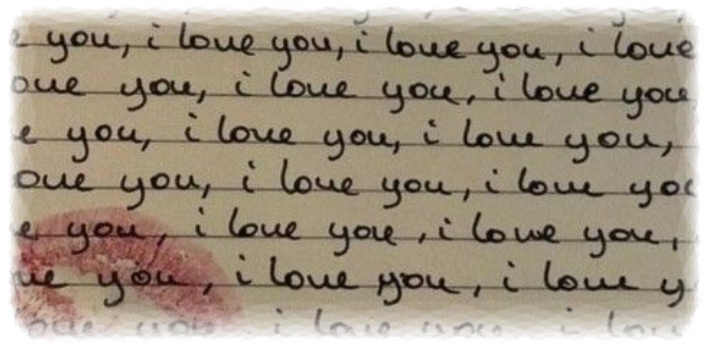 e you, i love you, i love you, i love
ove you, i love you, i love you
e you, i love you, i love you,
ove you, i love you, i love yo
e you, i love you, i love you,
ve you, i love you, i love y
ove you i love you i lov